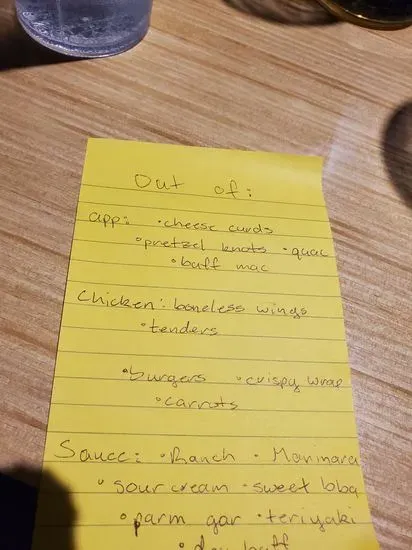 Out of:
app: • cheese curds
• pretzel knots • guac
• buff mac
Chicken: boneless wings
• tenders
• burgers • crispy wrap
• carrots
Sauce: • Ranch • Marinara
• sour cream • sweet bbq
• parm gar • teriyaki
• dry buff